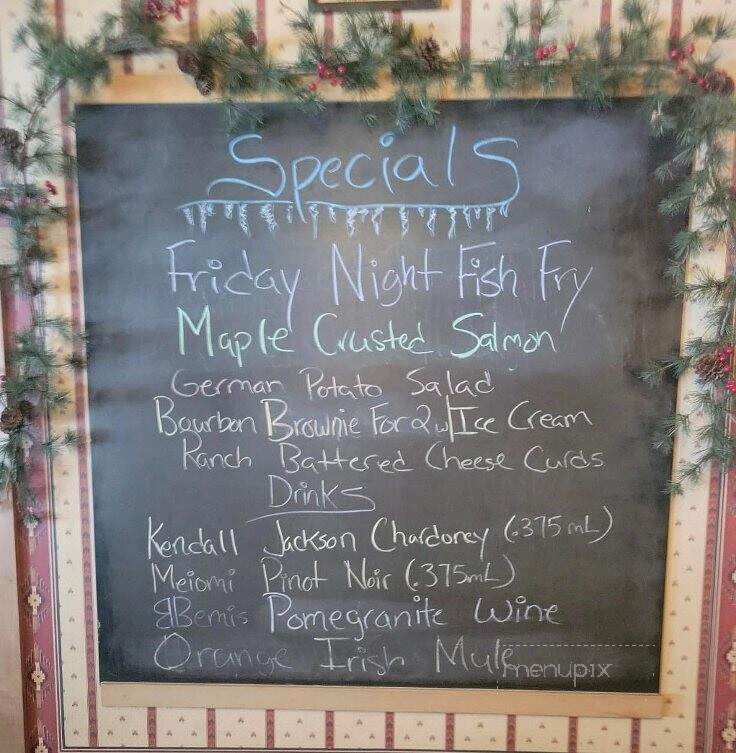 Specials
Friday Night Fish Fry
Maple Crusted Salmon
German Potato Salad
Bourbon Brownie For 2 w/ Ice Cream
Ranch Battered Cheese Curds
Drinks
Kendall Jackson Chardoney (.375mL)
Meiomi Pinot Noir (.375mL)
Bemis Pomegranite Wine
Orange Irish Mule
menupix